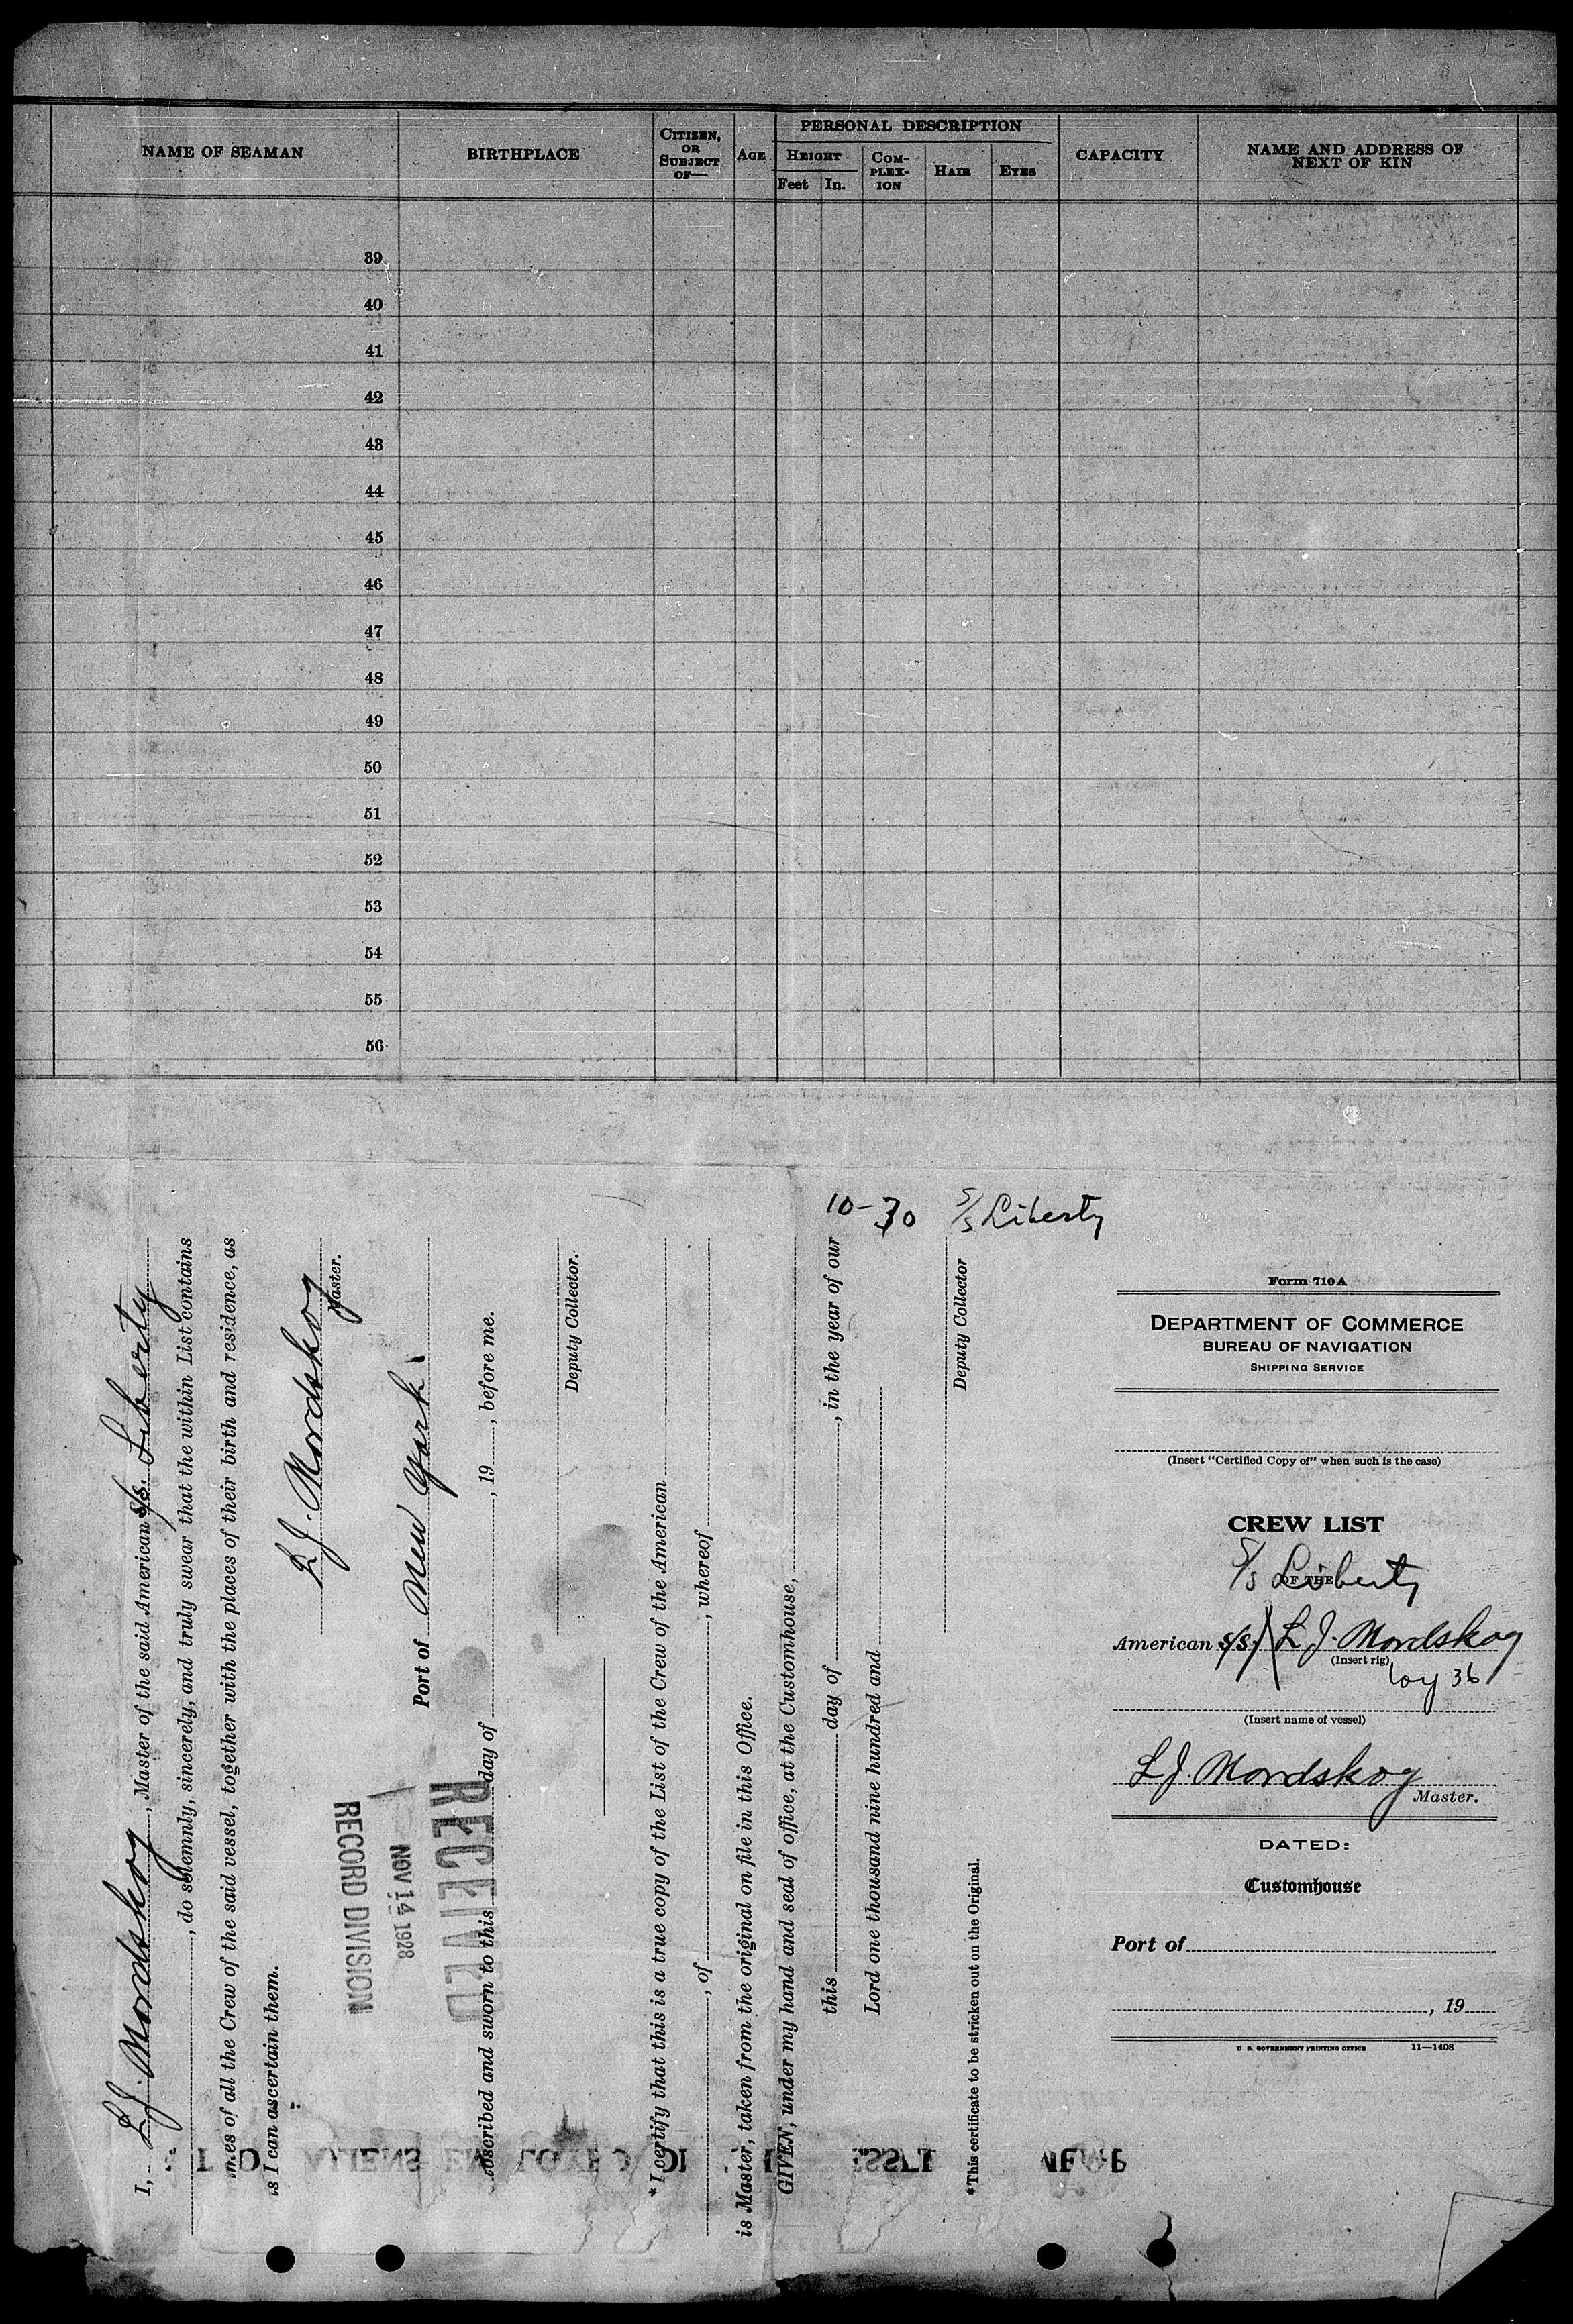 NAME OF SEAMAN
BIRTHPLACE
CITIZEN, OR SUBJECT OF—
AGE
PERSONAL DESCRIPTION
HEIGHT
Feet In.
COM-PLEX-ION
HAIR
EYES
CAPACITY
NAME AND ADDRESS OF NEXT OF KIN
39
40
41
42
43
44
45
46
47
48
49
50
51
52
53
54
55
56
10-30 S/S Liberty
I, L.J. Nordskog, Master of the said American S/S. Liberty
, do solemnly, sincerely, and truly swear that the within List contains
mes of all the Crew of the said vessel, together with the places of their birth and residence, as
as I can ascertain them.
L.J. Nordskog
Master.
Port of New York
bscribed and sworn to this day of , 19 , before me.
Deputy Collector.
RECEIVED
NOV 14 1928
RECORD DIVISION
*I certify that this is a true copy of the List of the Crew of the American
, of , whereof
is Master, taken from the original on file in this Office.
GIVEN, under my hand and seal of office, at the Customhouse,
this day of , in the year of our
Lord one thousand nine hundred and
Deputy Collector
*This certificate to be stricken out on the Original.
Form 710 A
DEPARTMENT OF COMMERCE
BUREAU OF NAVIGATION
SHIPPING SERVICE
(Insert "Certified Copy of" when such is the case)
CREW LIST
OF THE
S/S Liberty
American S/S. L J. Nordskog
(Insert rig)
Voy 36
(Insert name of vessel)
L J. Nordskog
Master.
DATED:
Customhouse
Port of
, 19
U. S. GOVERNMENT PRINTING OFFICE 11—1408